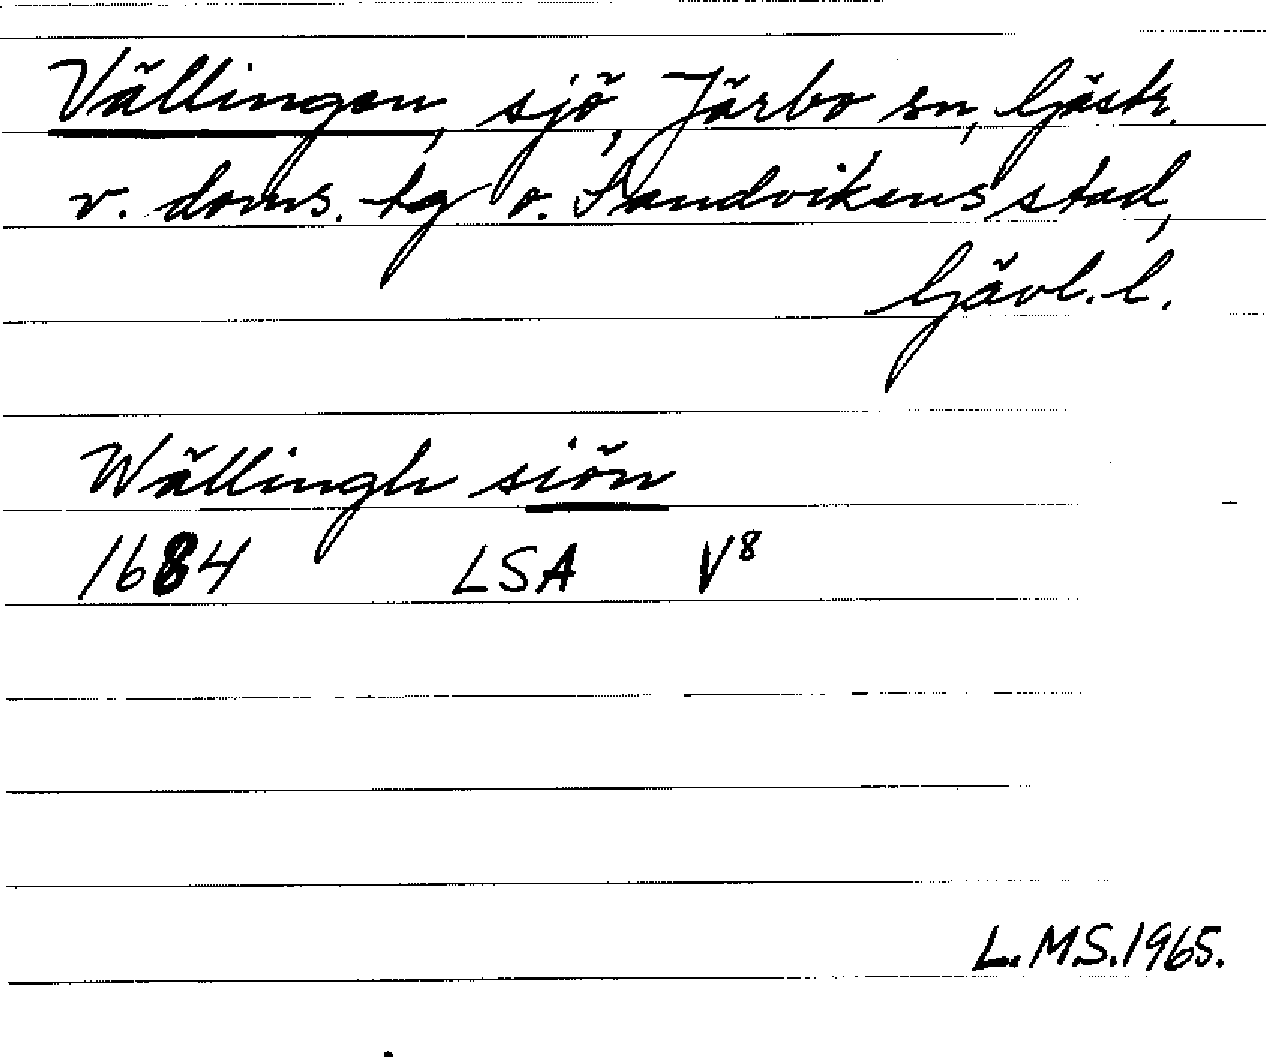 Vällingen, sjö, Järbo sn, Gästr.
v. doms. tg o. Sandvikens stad,
Gävl. l.
Wällingh siön
1684 LSA V8
L.M.S.1965.